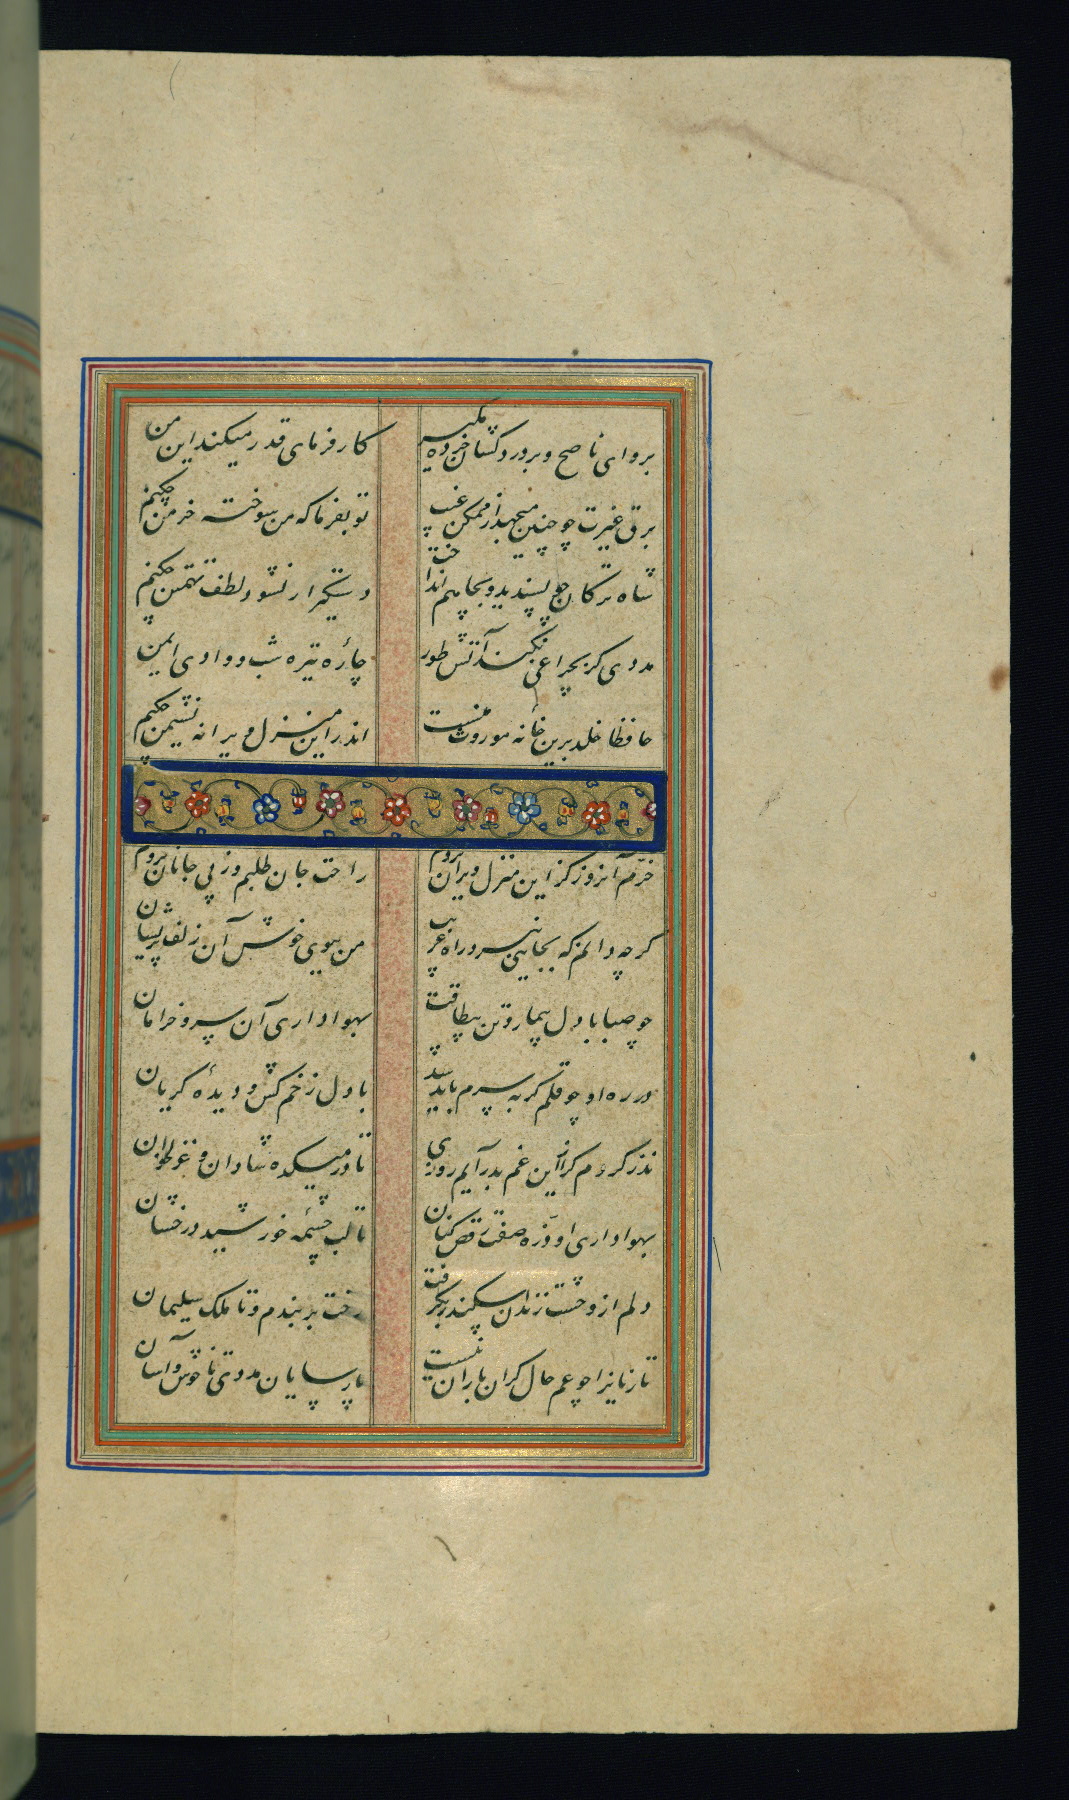 برو ای ناصح و بر دردکشان خرده مگیر
کارفرمای قدر میکند این من
برق غیرت چو چنین میجهد از ممکن غیب
تو بفرما که من سوخته خرمن چکنم
شاه ترکان چو پسندید و بچاهم انداخت
دستگیر ار نشود لطف تهمتن چکنم
مددی گر بچراغی نکند آتش طور
چارهٔ تیره شب و وادی ایمن
حافظا خلد برین خانهٔ موروث منست
اندر این منزل ویرانه نشیمن چکنم
خرّم آنروز کز این منزل ویران بروم
راحت جان طلبم وز پی جانان بروم
گرچه دانم که بجایی نبرد راه غریب
من ببوی خوش آن زلف پریشان
چو صبا با دل بیمار و تن بیطاقت
بهواداری آن سرو خرامان
در ره او چو قلم گر به سرم باید
با دل زخم کش و دیدهٔ گریان
نذر کردم گر از این غم بدر آیم روزی
تا در میکده شادان و غزلخوان
بهواداری او ذره صفت رقص کنان
تا لب چشمهٔ خورشید درخشان
دلم از وحشت زندان سکندر بگرفت
رخت بربندم و تا ملک سلیمان
تازنانیرا چو غم حال گران باران نیست
پارسایان مددی تا خوش و آسان